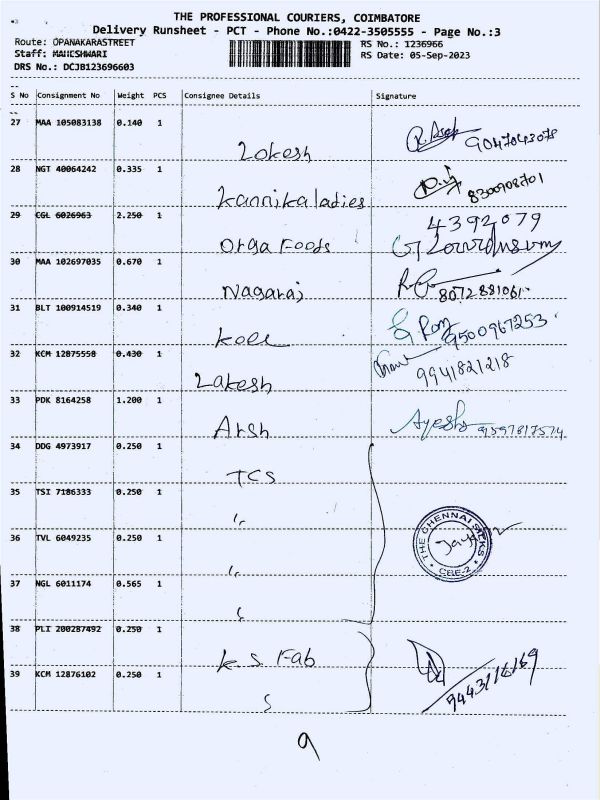 THE PROFESSIONAL COURIERS, COIMBATORE
Delivery Runsheet - PCT - Phone No.:0422-3505555 - Page No.:3
Route: OPANAKARASTREET RS No.: 1236966
Staff: MAHESHWARI RS Date: 05-Sep-2023
DRS No.: DCJB123696603
S No Consignment No Weight PCS Consignee Details Signature
27 MAA 105083138 0.140 1
Lokesh
28 NGT 40064242 0.335 1
8300908701
kannika ladies
29 CGL 6026963 2.250 1 4392079
Orga Foods
30 MAA 102697035 0.670 1
Nagaraj 8072881061
31 BLT 100914519 0.340 1
9500967253
32 KCM 12875558 0.430 1
9941821218
Lakesh
33 PDK 8164258 1.200 1
Arsh Ayesha 9597817574
34 DDG 4973917 0.250 1
TCS
35 TSI 7186333 0.250 1
THE CHENNAI SILKS
CBE-2
36 TVL 6049235 0.250 1
37 NGL 6011174 0.565 1
38 PLI 200287492 0.250 1
K. S. Fab
39 KCM 12876102 0.250 1
9443116169
9